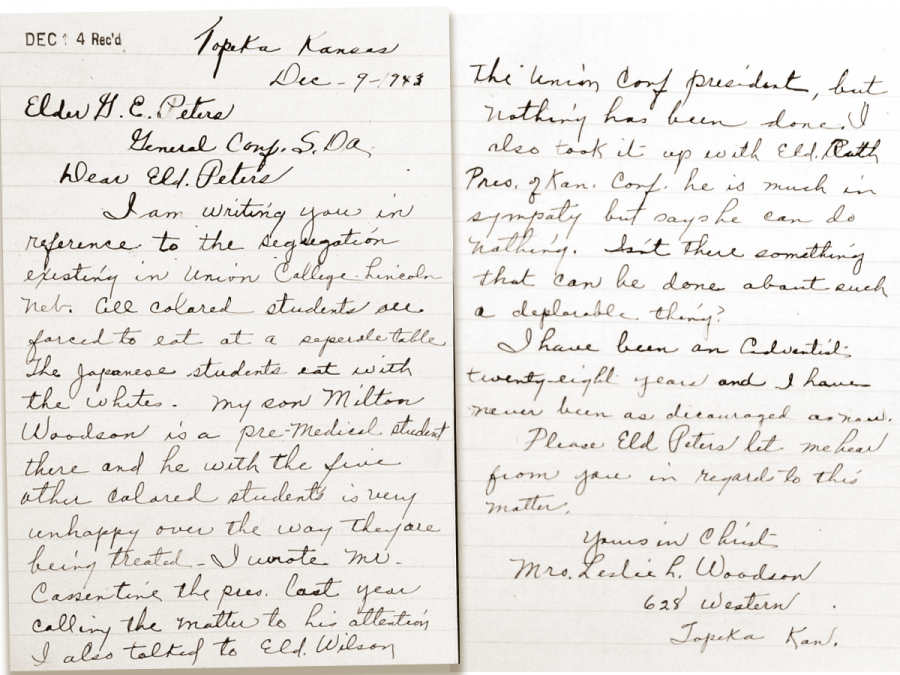 DEC 14 Rec'd
Topeka Kansas
Dec - 9 - 1943
Elder G. E. Peters
General Conf. S. Da.
Dear Eld. Peters
I am writing you in
reference to the segregation
existing in Union College Lincoln
Neb. All colored students are
forced to eat at a seperate table
The Japanese students eat with
the whites. My son Milton
Woodson is a pre-Medical student
there and he with the five
other colored students is very
unhappy over the way they are
being treated - I wrote Mr.
Cassentine the pres. last year
calling the matter to his attention
I also talked to Eld. Wilson
The Union Conf president, but
nothing has been done. I
also took it up with Eld. Ruth
Pres. of Kan. Conf. he is much in
sympaty but says he can do
nothing. Isn't there something
that can be done about such
a deplorable thing?
I have been an Adventist
twenty-eight years and I have
never been as dicouraged as now.
Please Eld Peters let me hear
from you in regard to this
matter.
Yours in Christ
Mrs. Leslie L. Woodson
628 Western
Topeka Kan.